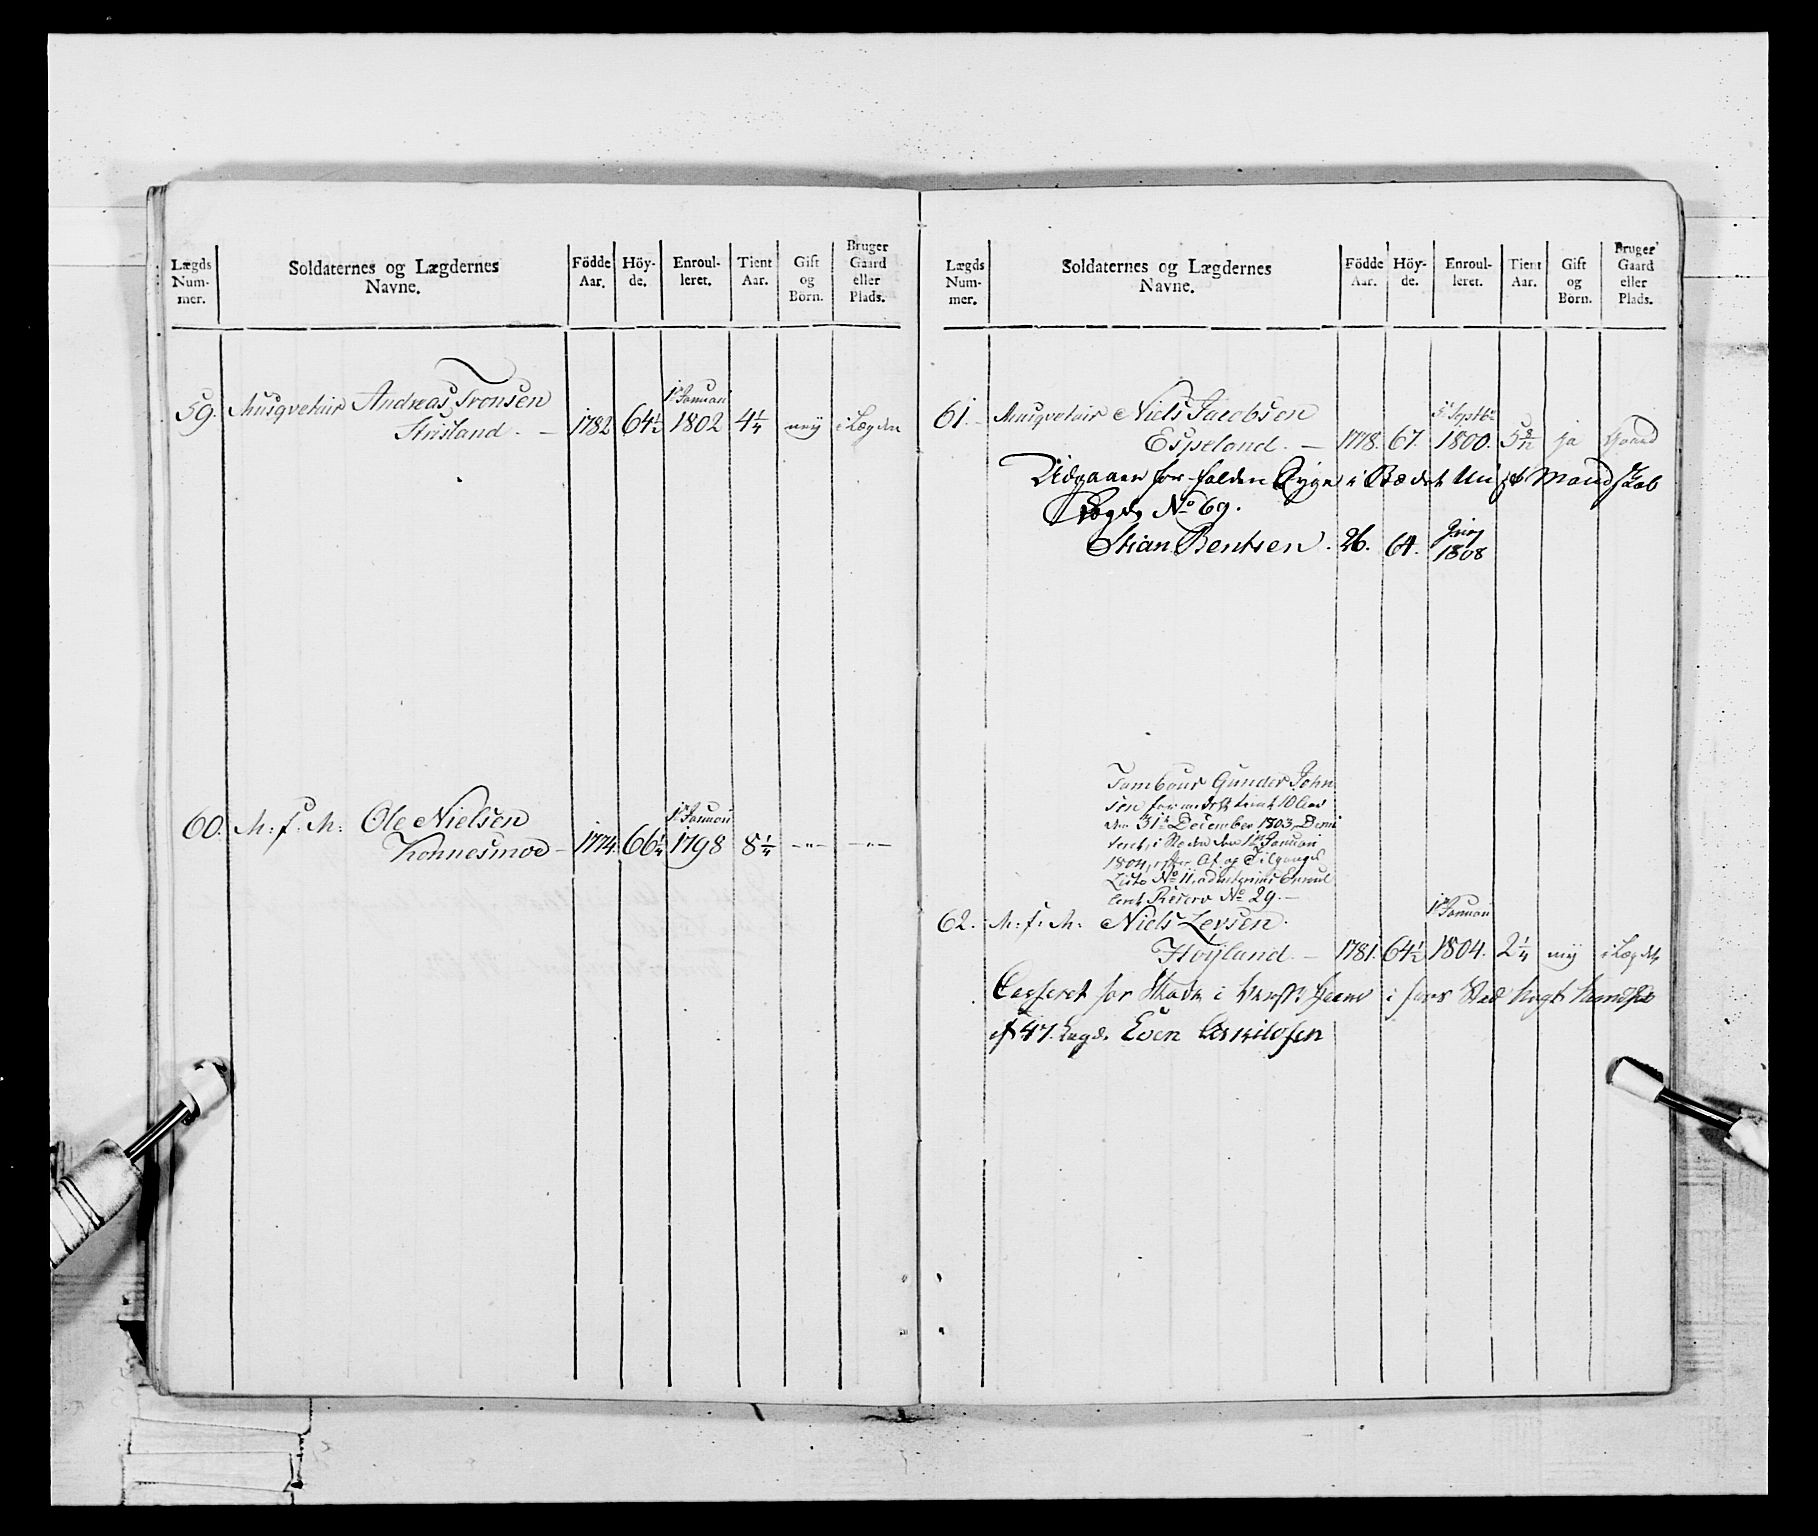 Lægds Num- mer.
Soldaternes og Lægdernes Navne.
Födde Aar.
Höy- de.
Enroul- leret.
Tient Aar.
Gift og Börn.
Bruger Gaard eller Plads.
59. Musqvetair Andreas Tronsen
Strisland. — 1782 64½ 1ste Januari 1802 4¼ neij i Lægden
60. M: f: M: Ole Nielsen
Konnesmoe — 1774 66¼ 1ste Januari 1798 8¼ —"— —"—
Lægds Num- mer.
Soldaternes og Lægdernes Navne.
Födde Aar.
Höy- de.
Enroul- leret.
Tient Aar.
Gift og Börn.
Bruger Gaard eller Plads.
61. Musqvetair Niels Jacobsen
Espeland. — 1778. 67. 5te Septbr 1800. 5 8/12 ja Gaard
Udgaaer for falden Syge i Stædet Mandskab
Lægds No 69.
Stian Bentsen. 26. 64. 1808
Tambour Gunder John
sen formedelst tient 10 Aar
den 31te December 1803, Dimi
teret, i Stæden den 1ste Januari
1804, efter Af og Tilgangs
Liste No 11, Enroul
leret Reserv No 29. —
62. M: f: M: Niels Levsen
Høyland. — 1781. 64½ 1ste Januari 1804. 2¼ neij i Lægden
Casseret for Skade i i hans Sted
af 47. Lægd. Even Askildsen